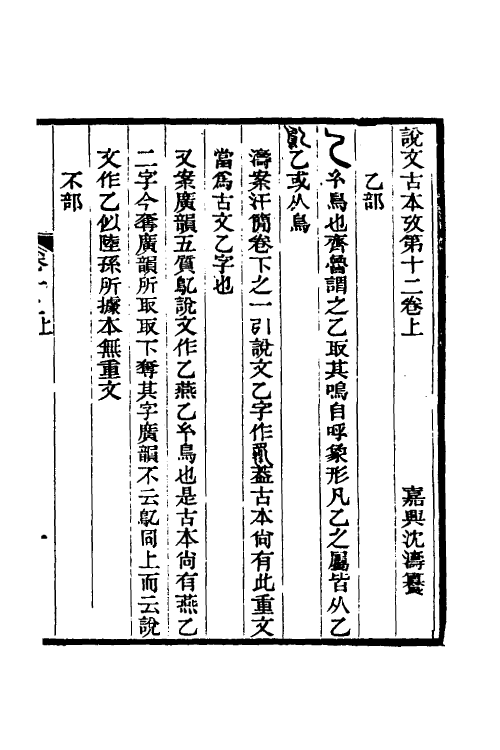 說文古本攷第十二卷上
嘉興沈濤纂
乙部
乙𤣥鳥也齊魯謂之乙取其鳴自呼象形凡乙之屬皆从乙
乙或从鳥
濤案汗簡卷下之一引說文乙字作葢古本尙有此重文
當爲古文乙字也
又案廣韻五質鳦說文作乙燕乙𤣥鳥也是古本尙有燕乙
二字今奪廣韻所取取下奪其字廣韻不云鳦同上而云說
文作乙似陸孫所據本無重文
不部